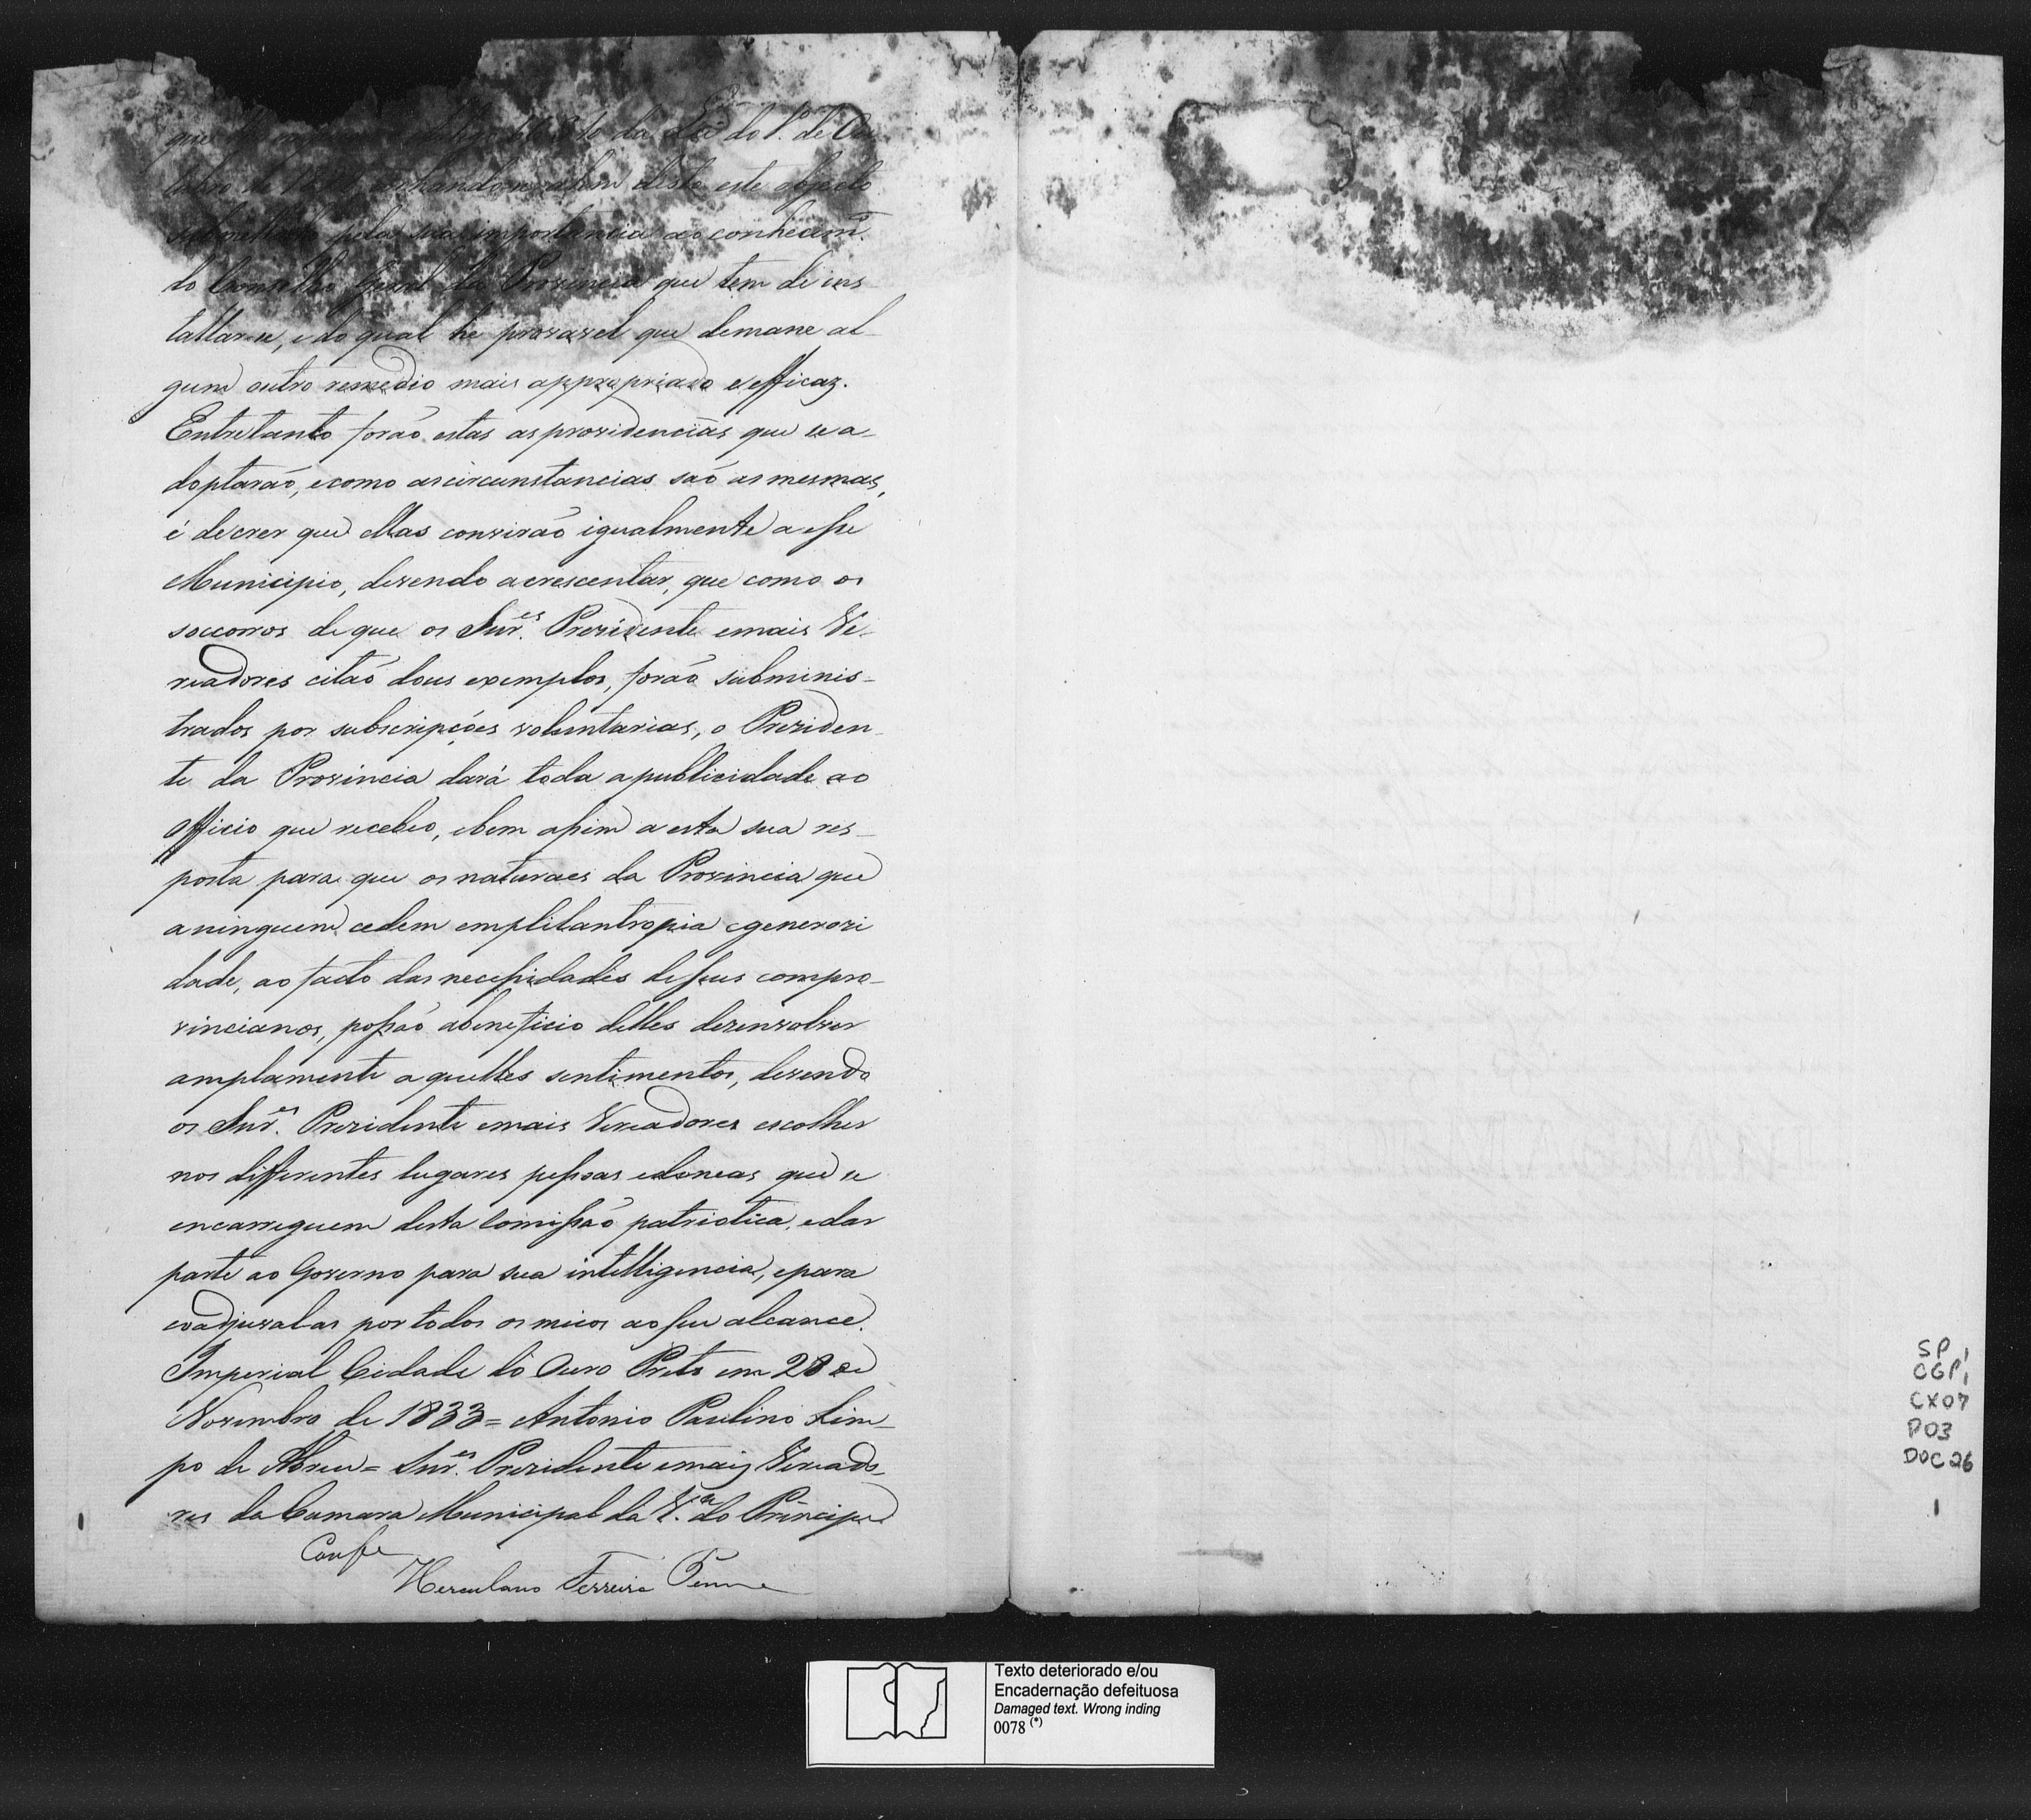 da Lei do 1.º de Ou
tubro de 18 achando-se alem disto este objecto
submettido pela sua importancia ao conhecim.to
do Conselho Geral da Provincia que tem de ins
tallar-se, e do qual he provavel que demane al-
gum outro remedio mais appropriado e efficaz.
Entretanto forão estas as providencias que se a-
doptarão, e como as circunstancias são as mesmas,
é de crer que ellas convirão igualmente a esse
Municipio, devendo acrescentar, que como os
soccorros de que os Snr.es Prezidente e mais Ve-
readores citão dous exemplos, forão subminis-
trados por subscripções voluntarias, o Preziden
te da Provincia dará toda a publicidade ao
Officio que recebeo, e bem assim a esta sua res-
posta para que os naturaes da Provincia que
a ninguem cedem em philantropia e generozi
dade, ao facto das necessidades de seus compro-
vincianos, possão a beneficio delles dezenvolver
amplamente aquelles sentimentos, devendo
os Snr.es Prezidente e mais Vereadores escolher
nos differentes lugares pessoas idoneas que se
encarreguem desta Comissão patriotica, e dar
parte ao Governo para sua intelligencia, e para
coadjuval-as por todos os meios ao seu alcance.
Imperial Cidade do Ouro Preto em 28 de
Novembro de 1833 = Antonio Paulino Lim-
po de Abreu = Snr.es Prezidente e mais Vereado-
res da Camara Municipal da V.a do Principe
Confe
Herculano Ferreira Penna
SP 1
CGP 1
CX 07
P 03
DOC 26
1
1
Texto deteriorado e/ou
Encadernação defeituosa
Damaged text. Wrong inding
0078 (*)